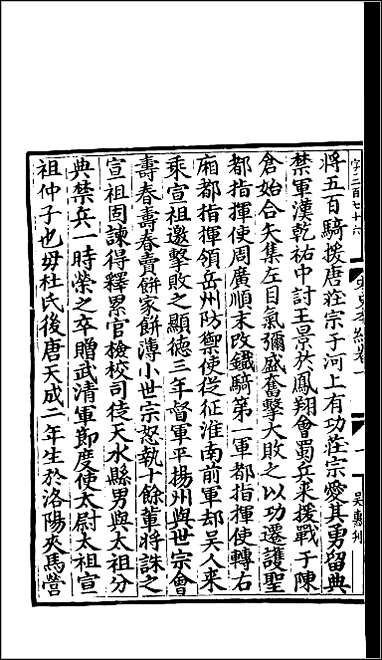 字二百七十六
吴惠刊
將五百騎援唐莊宗于河上有功莊宗愛其勇留典
禁軍漢乾祐中討王景於鳳翔會蜀兵來援戰于陳
倉始合矢集左目氣彌盛奮擊大敗之以功遷護聖
都指揮使周廣順末改鐵騎第一軍都指揮使轉右
廂都指揮領岳州防禦使從征淮南前軍却吴人來
乘宣祖邀擊敗之顯德三年督軍平揚州與世宗會
壽春壽春賣餅家餅薄小世宗怒執十餘輩將誅之
宣祖固諫得釋累官檢校司徒天水縣男與太祖分
典禁兵一時榮之卒贈武清軍節度使太尉太祖宣
祖仲子也母杜氏後唐天成二年生於洛陽夾馬營